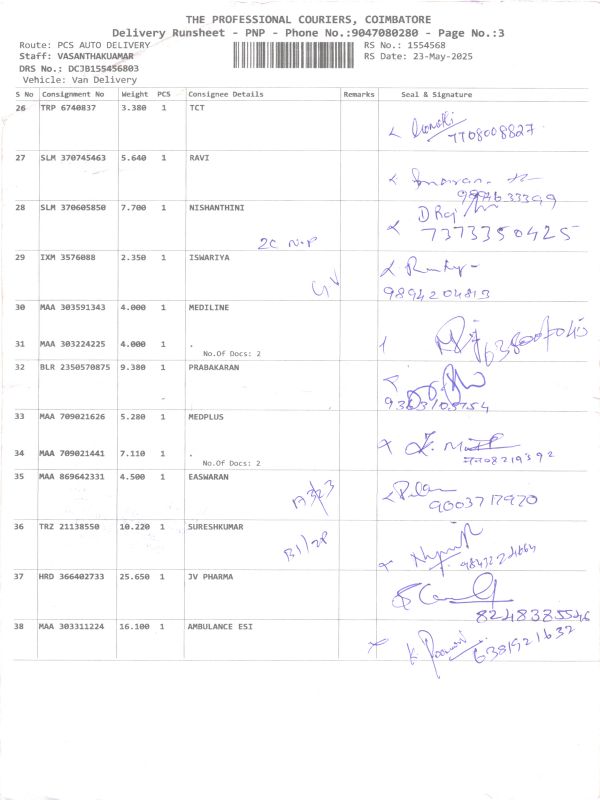 THE PROFESSIONAL COURIERS, COIMBATORE
Delivery Runsheet - PNP - Phone No.:9047080280 - Page No.:3
Route: PCS AUTO DELIVERY RS No.: 1554568
Staff: VASANTHAKUAMAR RS Date: 23-May-2025
DRS No.: DCJB155456803
Vehicle: Van Delivery
S No Consignment No Weight PCS Consignee Details Remarks Seal & Signature
26 TRP 6740837 3.380 1 TCT
7708008827
27 SLM 370745463 5.640 1 RAVI
28 SLM 370605850 7.700 1 NISHANTHINI
D Raj
2C N.P 7373350425
29 IXM 3576088 2.350 1 ISWARIYA
9894204813
30 MAA 303591343 4.000 1 MEDILINE
31 MAA 303224225 4.000 1 .
No.Of Docs: 2
32 BLR 2350570875 9.380 1 PRABAKARAN
33 MAA 709021626 5.280 1 MEDPLUS
34 MAA 709021441 7.110 1 .
No.Of Docs: 2
35 MAA 869642331 4.500 1 EASWARAN
9003717970
36 TRZ 21138550 10.220 1 SURESHKUMAR
37 HRD 366402733 25.650 1 JV PHARMA
8248385546
38 MAA 303311224 16.100 1 AMBULANCE ESI
6381921632